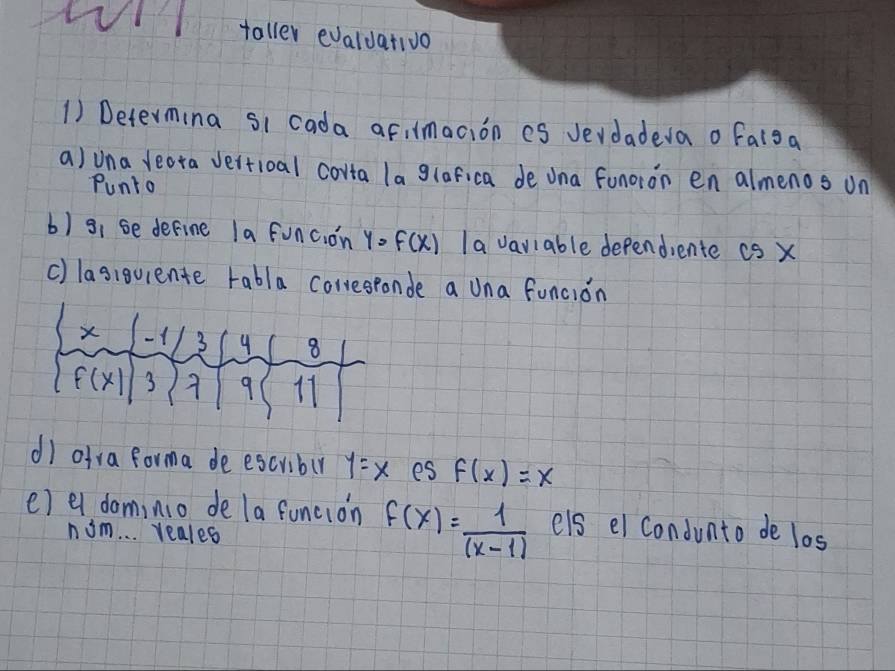 taller evaluativo
1) Determina si cada afirmación es verdadera o falsa
a) una recta vertical corta la grafica de una función en almenos un
Punto
b) si se define la función y=f(x) la variable dependiente es x
c) lasiguiente tabla corresponde a una función
x -1 3 4 8
f(x) 3 7 9 11
d) otra forma de escribir y=x es f(x)=x
e) el dominio de la función f(x)= 1/(x-1) els el condunto de los
núm... reales